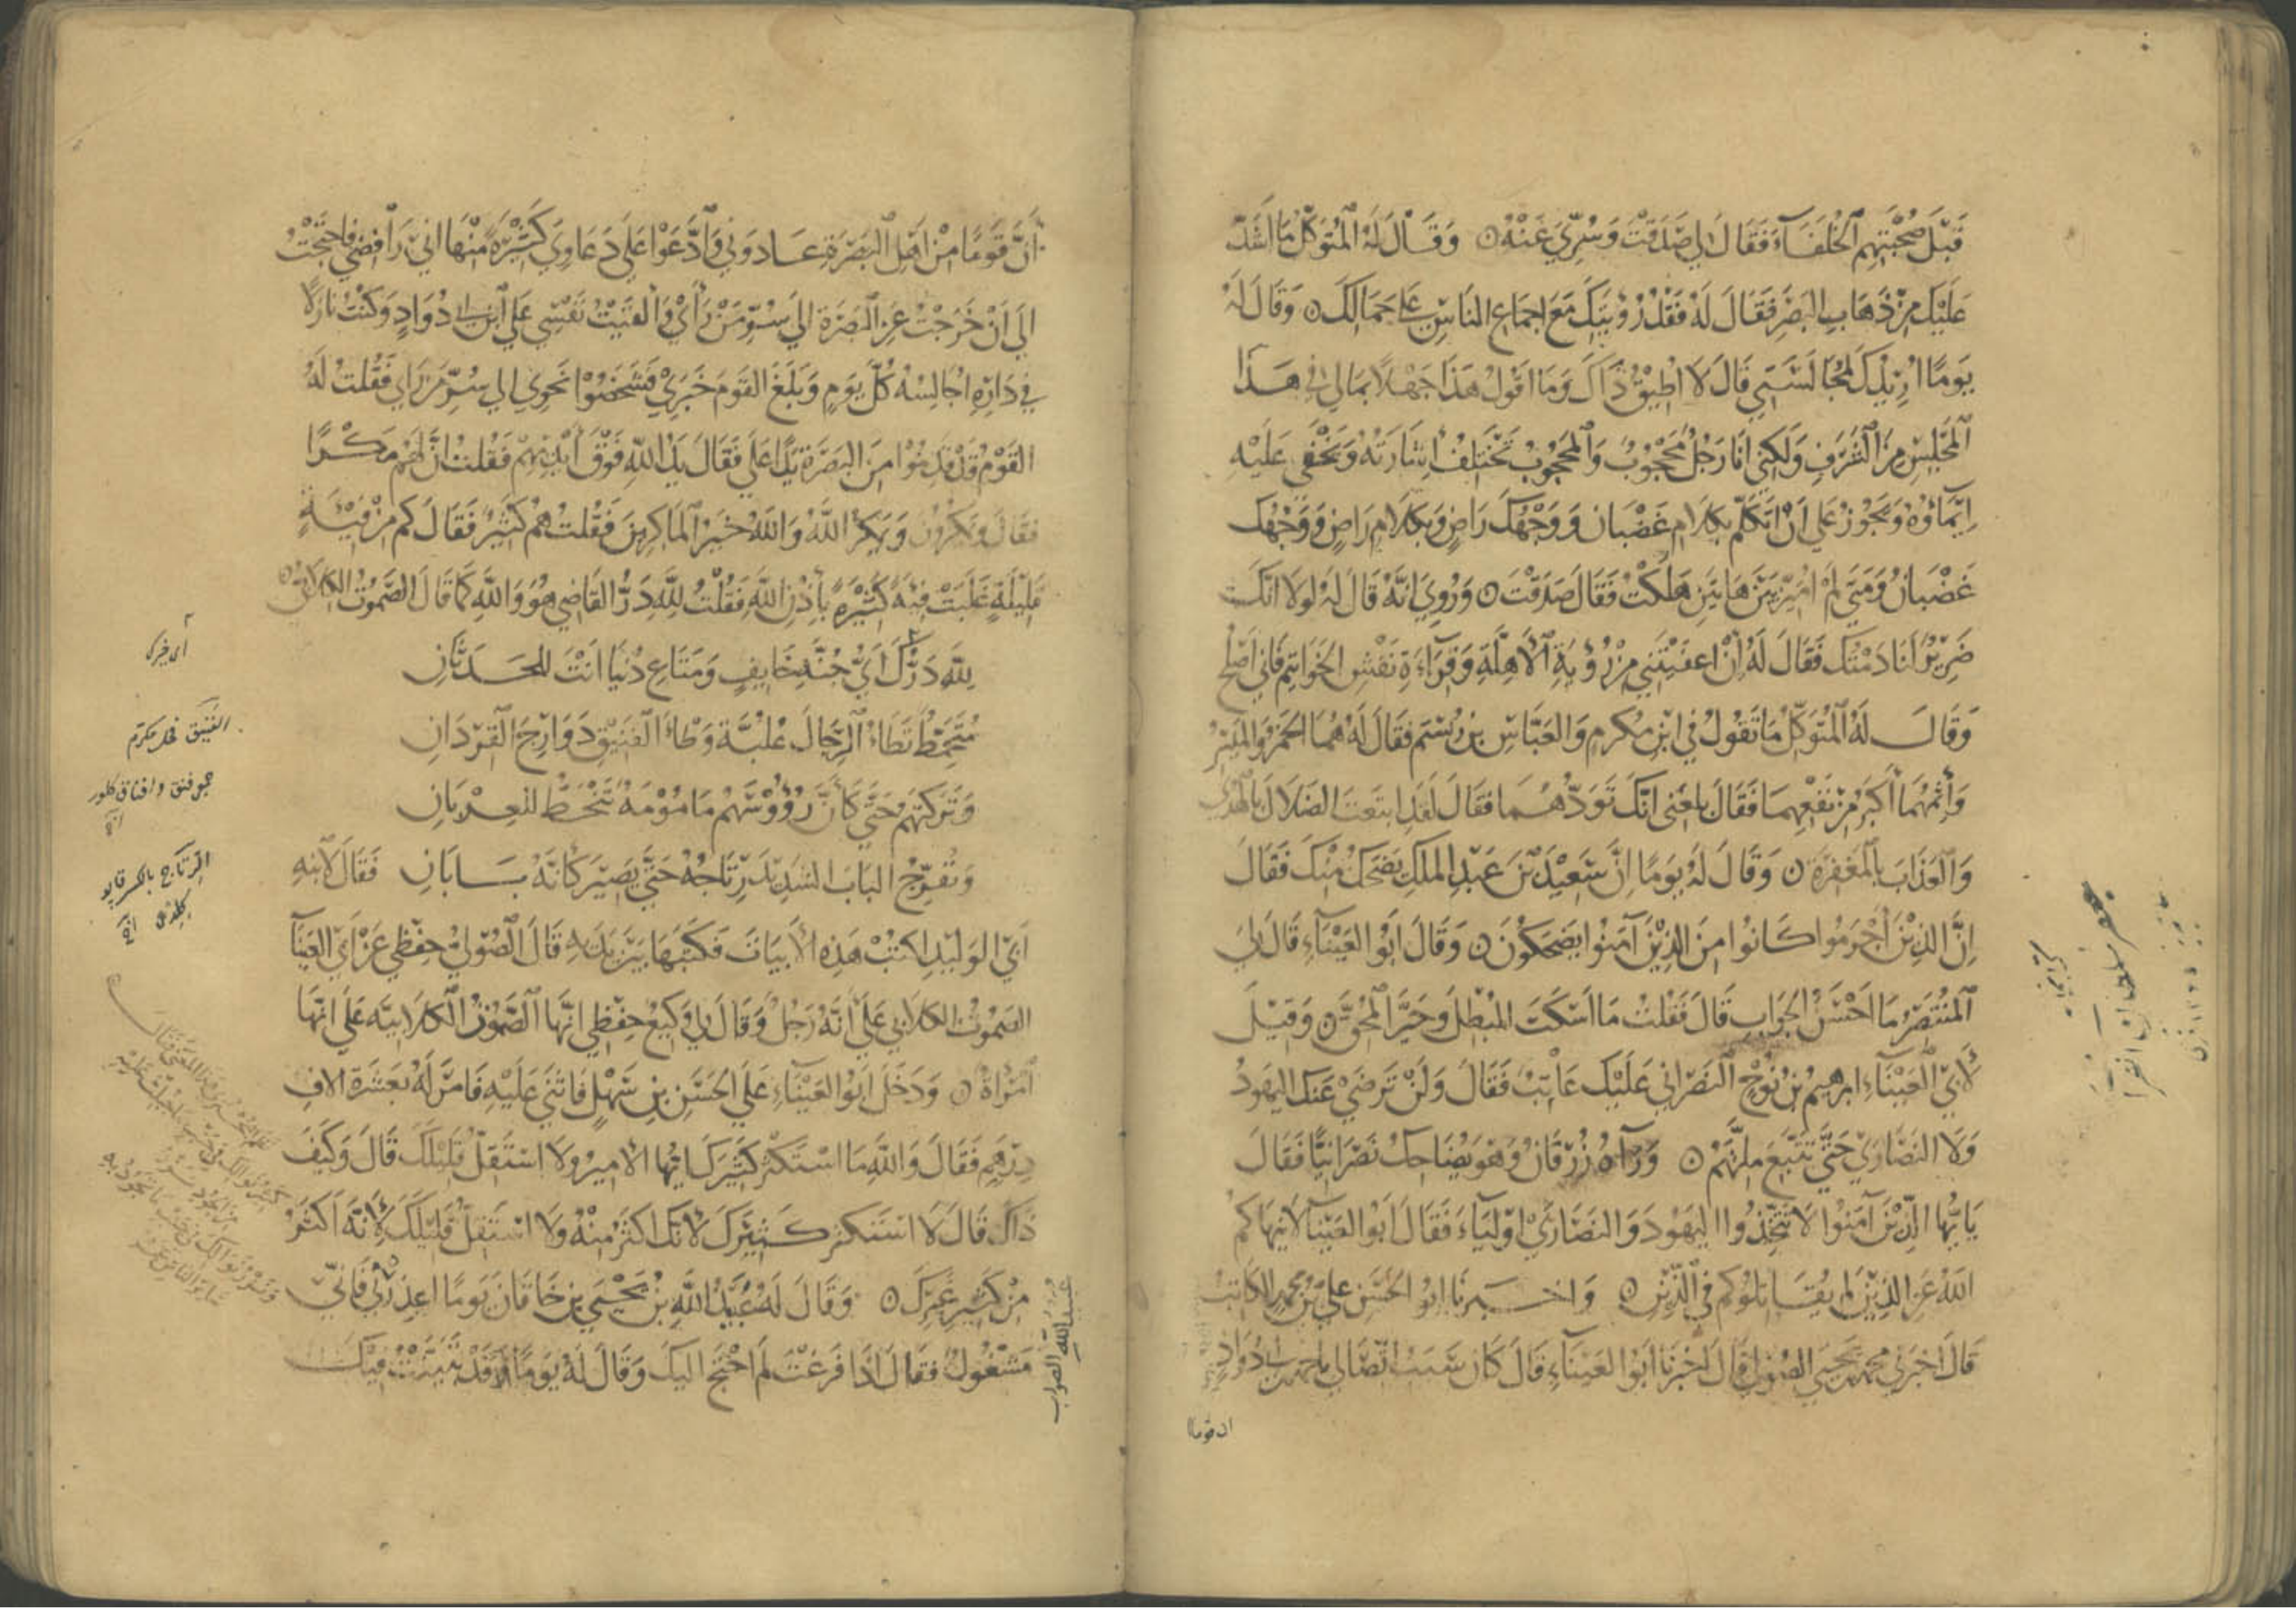 قَبْلَ صُحْبَتِهِم الخُلَفَآءَ فَقَالَ لي صَدَقْتَ وَسُرِّيَ عَنْهُ ۝ وَقَالَ لَهُ المُتَوَكّلُ مَا أَشَدّ
عَلَيْكَ مِنْ ذَهَابِ البَصَرِ فَقَالَ لَهُ فَقْدُ رُؤْيَتِكَ مَعَ اجمَاعِ النَاسِ عَلى جَمَالِكَ ۝ وَقَالَ لَهُ
يَومًا أُرِيْدُكَ لمُجَالَسَتي قَالَ لاَ أُطِيْقُ ذَاكَ وَمَا اَقُولُ هَذَا جَهْلاً بمَا لي في هَذَا
المَجْلِسِ مِنَ الشَّرَفِ وَلَكِني اَنَا رَجُلٌ مَحْجُوبٌ وَالمَحْجُوبُ تَخْتَلِفُ اِشَارَتُهُ وَيَخْفَى عَلَيْهِ
اِيْمَاؤُهُ وَيَجُوزُ عَلي أَنْ اتَكَلّم بكَلاَم غَضْبَان وَوَجْهُكَ رَاضٍ وَبكَلاَم رَاضٍ وَوَجْهُكَ
غَضْبَانُ وَمَتى لَمْ أُمَيّز بَيْنَ هَاتَينِ هَلَكْتُ فَقَالَ صَدَقْتَ ۝ وَرُوِيَ انَّهُ قَالَ لَهُ لَولاَ انَّكَ
ضَرِيْرٌ لَنَادَمْتُكَ فَقَالَ لَهُ اِنْ اعفَيْتَني مِنْ رُؤْيَةِ الأَهِلَّةِ وَقِرَاءَةِ نَقْشِ الخَوَاتِمِ فَاني اَصْلُحُ
وَقَالَ لَهُ المُتَوَكّلُ مَا تَقُولُ في ابْنِ مُكْرم وَالعَبَّاسِ بْن رُسْتَم فَقَالَ لَهُ هُمَا الخَمْرُ وَالمَيْسِرُ
وَأثمُهُمَا أَكبَرُ مِنْ نَفْعِهِمَا فَقَالَ بلغَني انَّكَ تَوَدّهُمَا فَقَالَ لَقَدِ ابتَعتُ الضَلاَلَ بالهُدَى
وَالعَذَابَ بالمَغفِرَةِ ۝ وَقَالَ لَهُ يَومًا اِنَّ سَعِيْدَ بْنَ عَبْدِ الملكِ يَضْحَكُ مِنْكَ فَقَالَ
اِنَّ الذِيْنَ أَجْرَمُوا كَانُوا مِنَ الذِيْنَ آمَنُوا يَضحَكُونَ ۝ وَقَالَ أَبُو العَيْنَاءِ قَالَ لِيَ
المُنْتَصِرُ مَا احْسَنُ الجَوابِ قَالَ فَقُلْتُ مَا اَسْكَتَ المُبْطِلَ وَحَيَّرَ المُحِقَّ ۝ وَقِيْلَ
لأَبي العَيْنَاءِ ابرهيمُ بْنُ نُوْحٍ النَصْرَاني عَلَيْكَ عَاتِبٌ فَقَالَ وَلَنْ تَرضَى عَنكَ اليَهُودُ
وَلاَ النَصَارَى حَتَّى تَتَّبعَ ملَّتَهُمْ ۝ وَرَآهُ زُرْقَانُ وَهُوَ يُضَاحِكُ نَصْرَانيًّا فَقَالَ
يَا أيُّهَا الّذِيْنَ آمَنُوا لاَ تَتَّخِذُوا اليَهُودَ وَالنَصَارَى اَوْلِيَاءَ فَقَالَ أَبُو العَيْنَآ لاَ يَنهَاكُم
اللهُ عَنِ الذِيْنَ لَم يُقَاتِلُوكُم في الدِّيْنِ ۝ وَاخـبرنَا ابُو الحَسَن عليّ بْن مُحَمَّدٍ الكَاتبُ
قَالَ اخبَرَني مُحَمَّد بْن يَحيَى الصُوليُّ قَالَ أخبَرنَا أَبُوا العَيْنَاءِ قَالَ كَانَ سَبَبُ اتّصَالي باحمَدَ بْن ابي دُوَادٍ
ان قومًا
أَنَّ قَومًا مِنْ اَهْلِ البَصْرَةِ عَـادوني وَادَّعَوا عَلي دَعَاوِيَ كَثِيْرَةً مِنْهَا اني رَافِضي فاحتَجْتُ
اِلَى أَنْ خَرَجْتُ عَنِ البَصْرَة الي سُرّ مَنْ رَأَىْ وَأَلقَيْتُ نَفْسِي عَلي ابْنِ ابي دُوَادٍ وَكُنْتُ نَازِلاً
في دَارِه اُجَالِسُهُ كُلَّ يَومٍ وَبَلَغَ القَومَ خَبَرِيْ فَشَخَصُوا نَحْوِي الي سُرّ مَن رَاى فَقُلْتُ لَهُ
القَوْمُ قَدْ قَدِمُوا مِنَ البَصْرَةِ يَدًا عَلَي فَقَالَ يَدُ اللهِ فَوْقَ أَيْدِيْهِمْ فَقُلْتُ انَّ لَهُمْ مَكْـرًا
فَقَالَ وَيمْكُرُونَ وَيَمكُرُ اللَّهُ وَاللهُ خَيْرُ المَاكِرِيْنَ فَقُلْتُ هُمْ كَثِيْرٌ فَقَالَ كَم مِنْ فِئَةٍ
قَلِيْلَةٍ غَلَبَتْ فِئةً كَثِيْرَةً بأِذْنِ اللهِ فَقُلْتُ لِلَّهِ دَرُّ القَاضِي هُوَ وَاللهِ كَمَا قَالَ الصّمُوتُ الكلاَبيُّ ۝
لِلَّهِ دَرُّكَ أَيُّ جُنَّةِ خَايفٍ وَمَتَاعِ دُنْيَا انْتَ للحَـدَثَانِ
مُتَخَمِّطٌ تَطَاءُ الرّجَالَ غُلبَّةً وَطْأَ الفَنيْقِ دَوَارِجَ القِرْدَانِ
وَتَرَكتَهم حَتَّي كَأَنَّ رُؤُوسَهُمْ مَامُوْمَةٌ تَنْحَطُّ للغِـرْبَانِ
وَتُفَرّجُ البَابَ الشَدِيْدَ رِتَاجُهُ حَتَّى يَصِيْرَ كَانَّهُ بَـابَانِ فَقَالَ لابْنِهِ
أَبي الوَلِيْدِ اكتُبْ هَذِهِ الأَبيَاتَ فَكَتَبَهَا بَيْنَ يَدَيْهِ قَالَ الصُّوليُّ حِفْظِي عَنْ أَبي العَيْنَآ
الصّمُوتُ الكلاَبي عَلَى أَنَّهُ رَجُلٌ وَقَالَ لِي وَكِيْعٌ حِفْظِي انَّهَا الصَّمُوتُ الكلاَبيَّه عَلَى انَّهَا
امْرَاةٌ ۝ وَدَخَلَ اَبُو العَيْنَاءِ عَلَي الحَسَنِ بْنِ سَهْلٍ فَاثنَى عَلَيْهِ فَامَرَ لَهُ بعَشَرَة الافِ
دِرْهَمٍ فَقَالَ وَاللهِ مَا اسْتَكثِرُ كَثِيْرَكَ ايُّهَا الامِيرُ وَلاَ اسْتَقِلّ قَلِيْلَكَ قَالَ وَكَيفَ
ذَاكَ قَالَ لاَ اسْتَكثِرُ كَـثِيْرَكَ لأَنَّكَ اكثَرُ مِنْهُ وَلاَ اسْتَقِلُّ قَلِيْلَكَ لأَنَّهُ اَكثَرُ
مِنْ كَثِيْرِ غَيْرِكَ ۝ وَقَالَ لَهُ عُبَيْدُ اللهِ بْنُ يَحْيَى بنِ خَاقَان يَومًا اعذِرني فَاِنيّ
مَشْغُولٌ فَقَالَ اذَا فَرغتَ لَمْ احْتَجْ اليكَ وَقَالَ لَهُ يَومًا قَدْ تَبَيَّنْتُ فِيْكَ
اى خرى
الفنيق فحل مكرم
جو فنق وافناق كلور
الرتاج بالكسر قاپو
عبيد الله الصواب